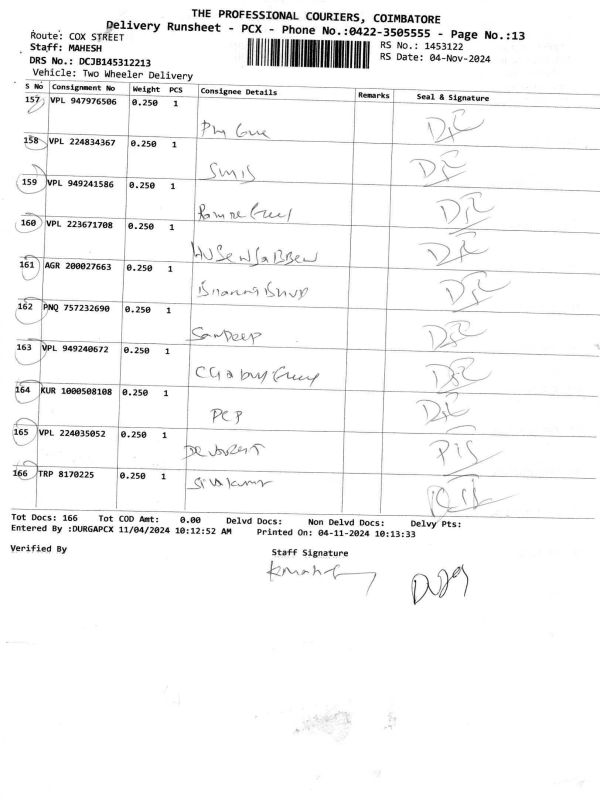 THE PROFESSIONAL COURIERS, COIMBATORE
Delivery Runsheet - PCX - Phone No.:0422-3505555 - Page No.:13
Route: COX STREET
RS No.: 1453122
Staff: MAHESH
RS Date: 04-Nov-2024
DRS No.: DCJB145312213
Vehicle: Two Wheeler Delivery
S No Consignment No Weight PCS Consignee Details Remarks Seal & Signature
157 VPL 947976506 0.250 1
158 VPL 224834367 0.250 1
159 VPL 949241586 0.250 1
160 VPL 223671708 0.250 1
161 AGR 200027663 0.250 1
162 PNQ 757232690 0.250 1
Sandeep
163 VPL 949240672 0.250 1
164 KUR 1000508108 0.250 1
PCP
165 VPL 224035052 0.250 1
166 TRP 8170225 0.250 1
Sivakumar
Tot Docs: 166 Tot COD Amt: 0.00 Delvd Docs: Non Delvd Docs: Delvy Pts:
Entered By :DURGAPCX 11/04/2024 10:12:52 AM Printed On: 04-11-2024 10:13:33
Verified By
Staff Signature